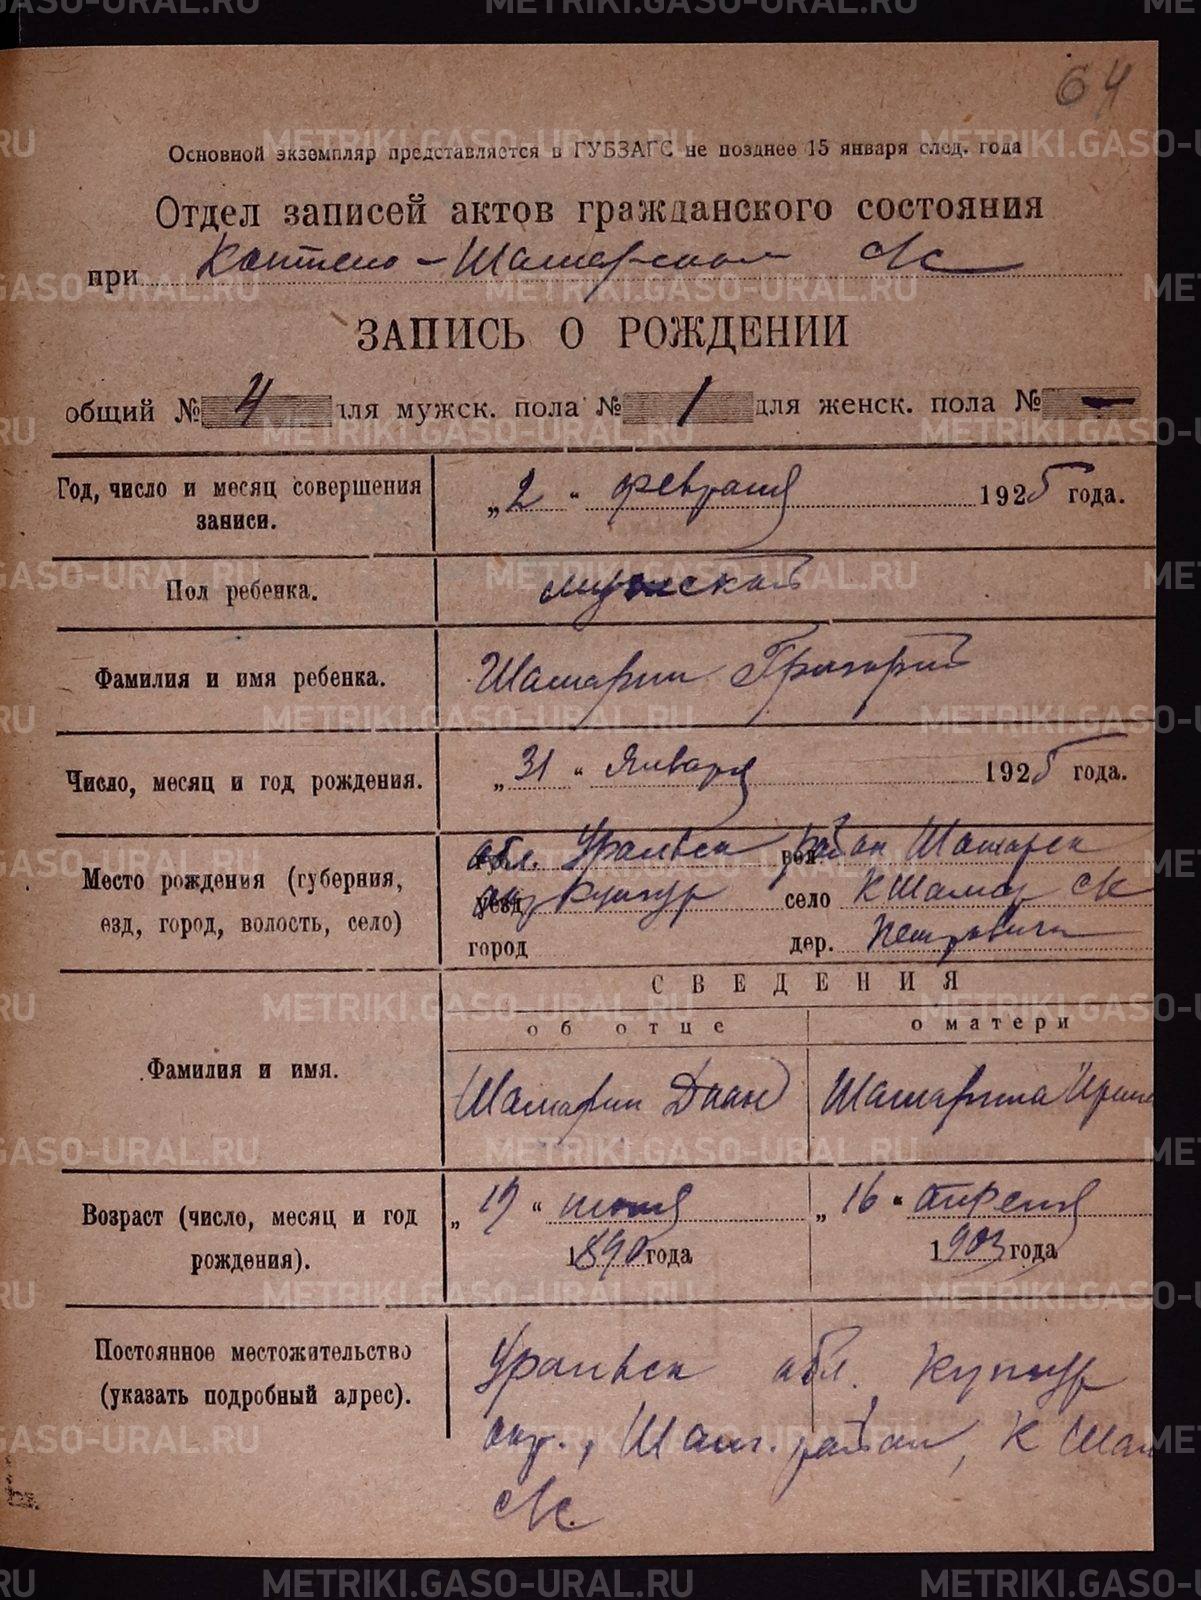 64
Основной экземпляр представляется в ГУБЗАГС не позднее 15 января след. года
Отдел записей актов гражданского состояния
при Коптело-Шамарском с/с
ЗАПИСЬ О РОЖДЕНИИ
общий № 4 для мужск. пола № 1 для женск. пола № —
Год, число и месяц совершения записи.
„2“ февраля 1925 года.
Пол ребенка.
мужской
Фамилия и имя ребенка.
Шамарин Григорий
Число, месяц и год рождения.
„31“ Января 1925 года.
Место рождения (губерния,
езд, город, волость, село)
обл. Уральск район Шамарск
окр Кунгур село К Шамар с/с
город дер.
СВЕДЕНИЯ
об отце
о матери
Фамилия и имя.
Шамарин
Шамарина Ирин
Возраст (число, месяц и год
рождения).
„19“ июня
1890 года
„16“ апреля
1903 года
Постоянное местожительство
(указать подробный адрес).
Уральск обл. Кунгур
окр., Шам. район, К Шам
с/с
METRIKI.GASO-URAL.RU